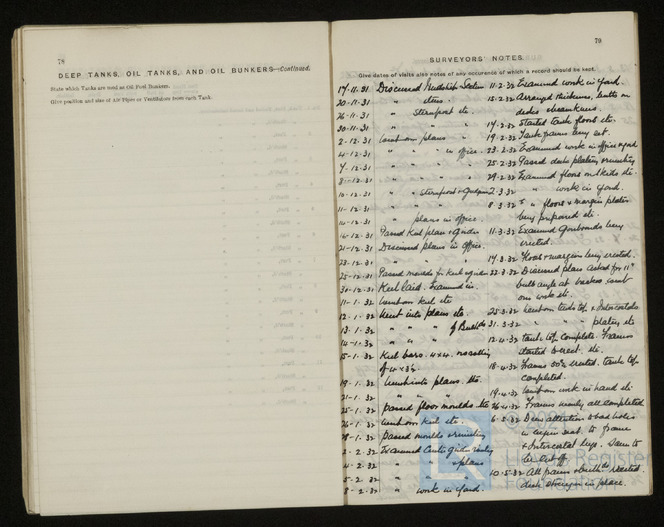 78
DEEP TANKS, OIL TANKS, AND OIL BUNKERS—Continued.
State which Tanks are used as Oil Fuel Bunkers.
Give position and size of Air Pipes or Ventilators from each Tank.
79
SURVEYORS' NOTES.
Give dates of visits also notes of any occurance of which a record should be kept.
17.11.31 Discussed Midship Section
20.11.31 " ditto "
26.11.31 " Sternpost etc.
30.11.31 " " "
2.12.31 Went over plans
4.12.31 " " " in office.
7.12.31 " " "
8.12.31 " " "
10.12.31 " Sternpost &
11.12.31 " " "
14.12.31 " plans in office.
16.12.31 Passed Keel plan &
21.12.31 Discussed plans in office.
23.12.31 " " "
25.12.31 Passed moulds for keel
30.12.31 Keel laid. Examined
11.1.32 Went over keel etc
12.1.32 Went into plans etc.
13.1.32 " " " of Bulkds
14.1.32 " " "
15.1.32 Keel bars 4x4.
of 4 x 3½
19.1.32 Went into plans. etc.
21.1.32 " " "
25.1.32 passed floor moulds. etc
26.1.32 Went over keel etc.
28.1.32 passed moulds
2.2.32 Examined Centre girder
4.2.32 " " " plans
5.2.32 " " "
8.2.32 " work in yard.
11.2.32 Examined work in yard.
15.2.32 Arranged thickness, butts on
decks
17.2.32 Started tank floors etc.
19.2.32 Tank frames being set.
23.2.32 Examined work in office & yard
25.2.32 Passed deck plating
29.2.32 Examined floors on skids etc.
2.3.32 " work in yard.
8.3.32 " floors & margin plates
being prepared etc.
11.3.32 Examined being
erected.
17.3.32 Floors & margins being erected.
22.3.32 Discussed plans asked for 11"
bulb angle at breaks
25.3.32 Went over Tank top & Intercostals
31.3.32 " " " plating etc
12.4.32 tank top complete. Frames
started to erect. etc.
18.4.32 Frames 50% erected. tank top
completed.
19.4.32 Went over work in hand etc.
26.4.32 Frames nearly all completed
6.5.32 Drew attention to bad holes
to frame
& Intercostal lugs. Same to
be cut off
10.5.32 All frames & bulkds erected.
deck stringers in place.
© 202
Lloyd's Register
Foundation